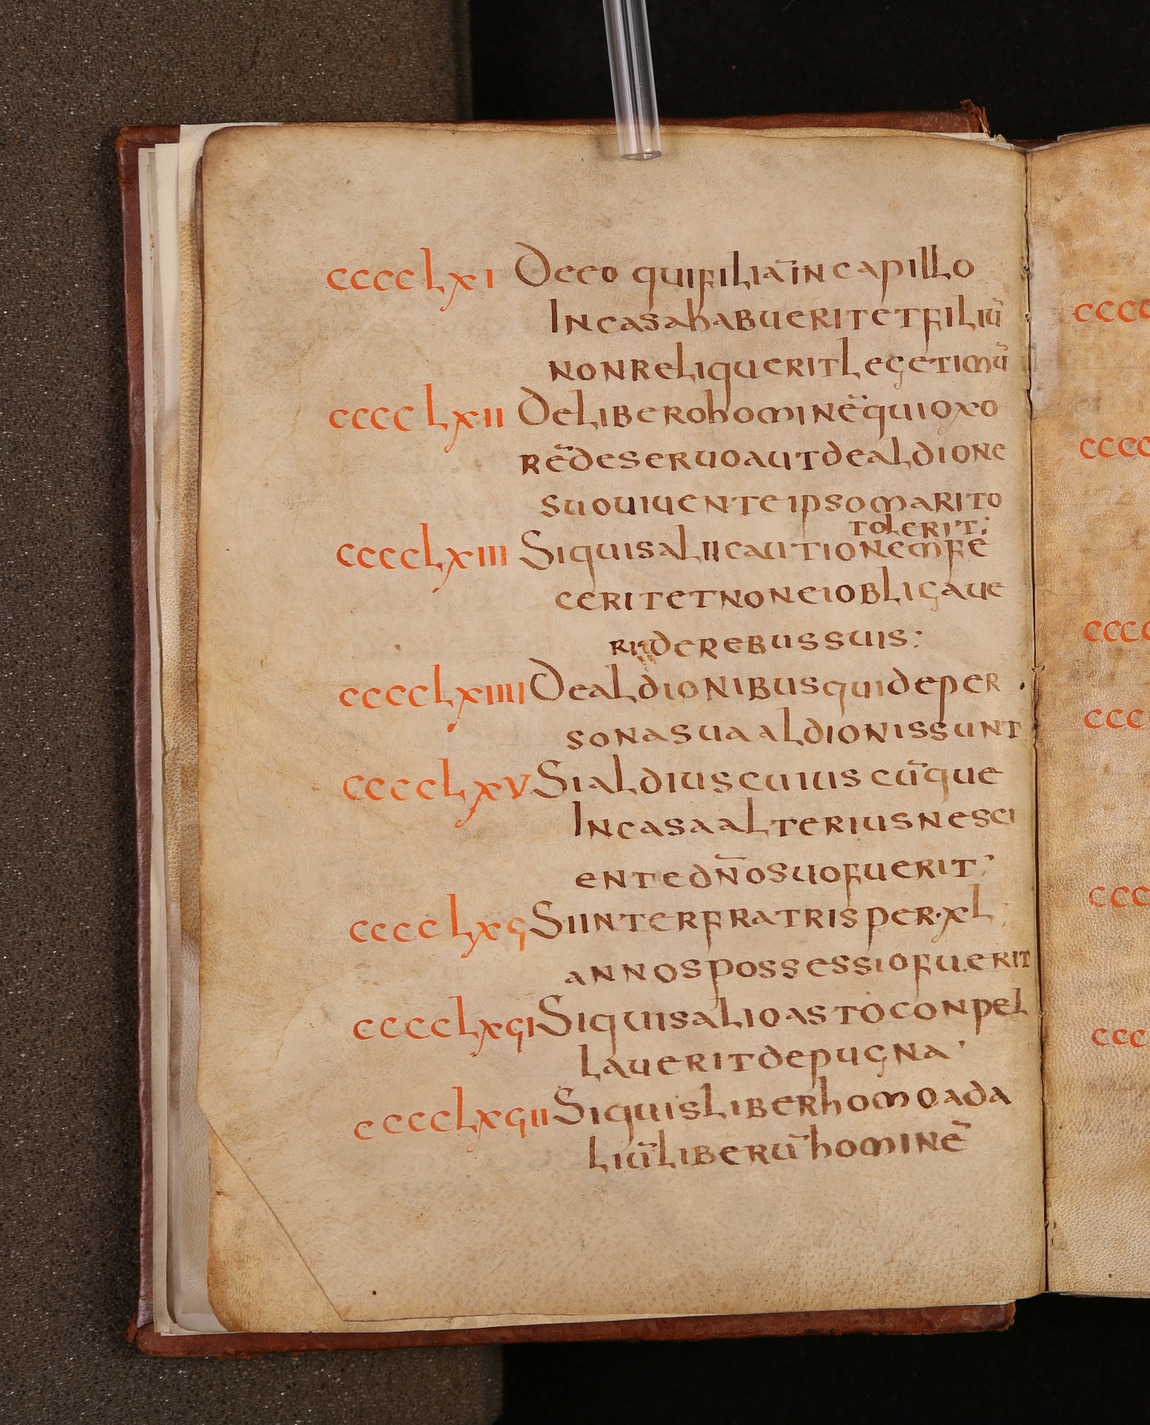 ccccLxi De eo qui filiā in capillo
In casa habuerit et filiū
non reliquerit legetimū
ccccLxii De libero hominē qui uxo
rē de seruo aut de aldione
suo uiuente ipso marito
tolerit;
ccccLxiii Si quis alii cautionem fe
cerit et non ei obligaue
rit de rebus suis:
ccccLxiiii De aldionibus qui de per
sona sua aldionis sunt
ccccLxv Si aldius cuius cūque
In casa alterius nesci
ente dn̄o suo fuerit;
ccccLxϛ Si inter fratris per·xL·
annos possessio fuerit
ccccLxϛi Si quis alio asto conpel
lauerit de pugna
ccccLxϛii Si quis liber homo ada
liū liberū hominē
cccc
cccc
cccc
ccc
ccc
ccc